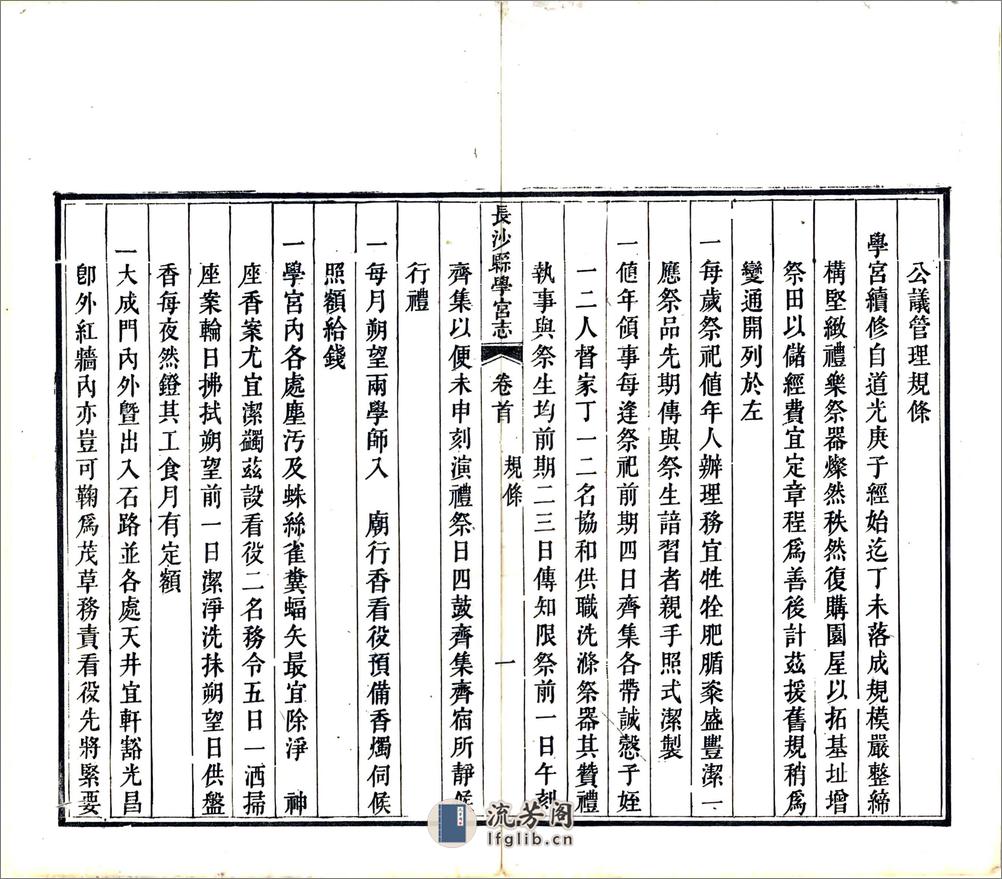 公議管理規條
學宮續修自道光庚子經始迄丁未落成規模嚴整締
構堅緻禮樂祭器燦然秩然復購園屋以拓基址增
祭田以儲經費宜定章程爲善後計茲援舊規稍爲
變通開列於左
一每歲祭祀值年人辦理務宜牲牷肥腯粢盛豐潔一
應祭品先期傳與祭生諳習者親手照式潔製
一值年領事每逢祭祀前期四日齊集各帶誠慤子姪
一二人督家丁一二名協和供職洗滌祭器其贊禮
執事與祭生均前期二三日傳知限祭前一日午刻
長沙縣學宮志 卷首 規條 一
齊集以便未申刻演禮祭日四鼓齊集齊宿所靜候
行禮
一每月朔望兩學師入 廟行香看役預備香燭伺候
照額給錢
一學宮內各處塵汚及蛛絲雀糞蝠矢最宜除淨 神
座香案尤宜潔蠲茲設看役二名務令五日一洒掃
座案輪日拂拭朔望前一日潔淨洗抹朔望日供盤
香每夜然鐙其工食月有定額
一大成門內外暨出入石路並各處天井宜軒豁光昌
卽外紅牆內亦豈可鞠爲茂草務責看役先將緊要
流芳阁
lfglib.cn